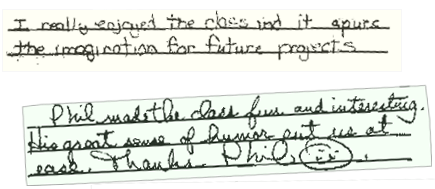 I really enjoyed the class and it spurs
the imagination for future projects
Phil made the class fun and interesting.
His great sense of humor put us at
ease. Thanks Phil,